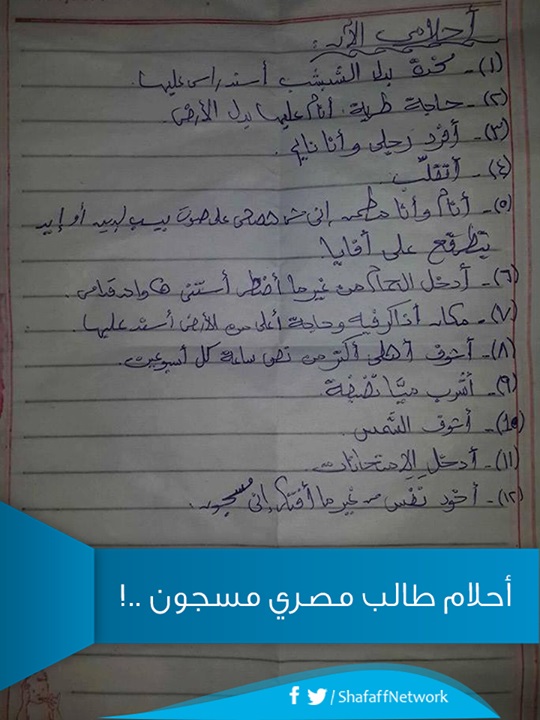 أحلامي الآن:
(١)- مخدة بدل الشبشب أسند راسي عليها.
(٢)- حاجة طرية أنام عليها بدل الأرض.
(٣)- أفرد رجلي وأنا نايم.
(٤)- أتقلب.
(٥)- أنام وأنا مطمن إني مش هصحى على صوت بيسب لبيه أو إيد
بتطرقع على أفايا.
(٦)- أدخل الحمام من غير ما أضطر أستنى ٥ واحد قدامي.
(٧)- مكان أذاكر فيه وحاجة أعلى من الأرض أسند عليها.
(٨)- أشوف أهلي أكتر من نص ساعة كل أسبوعين.
(٩)- أشرب ميَّا نضيفة.
(١٥)- أشوف الشمس.
(١١)- أدخل الامتحانات.
(١٢)- أخود نفس من غير ما أفتكر إني مسجون.
أحلام طالب مصري مسجون ..!
f / ShafaffNetwork